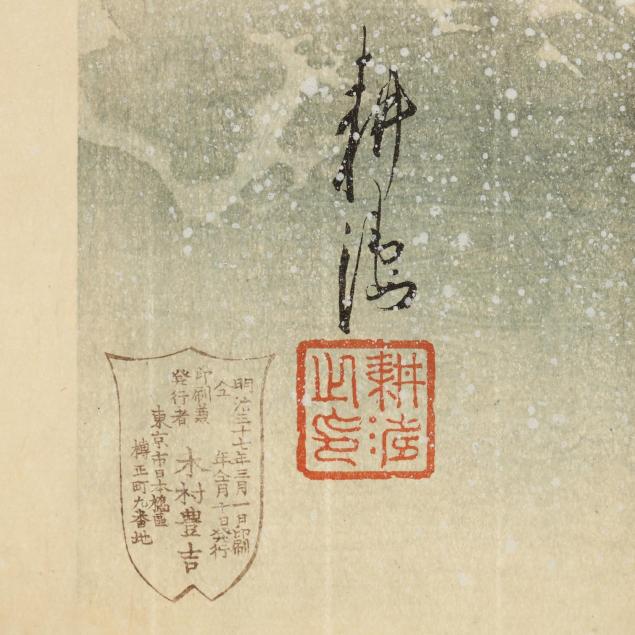 耕漁
耕漁
之印
明治三十七年三月一日印刷
仝年仝月十日発行
印刷兼
発行者
木村豊吉
東京市日本橋區
樽正町九番地